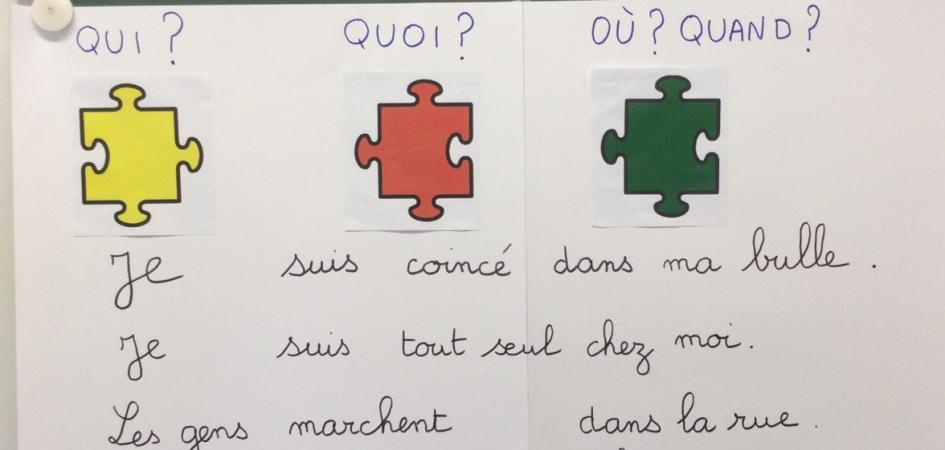 QUI ? QUOI ? OÙ ? QUAND ?
Je suis coincé dans ma bulle .
Je suis tout seul chez moi.
Les gens marchent dans la rue .